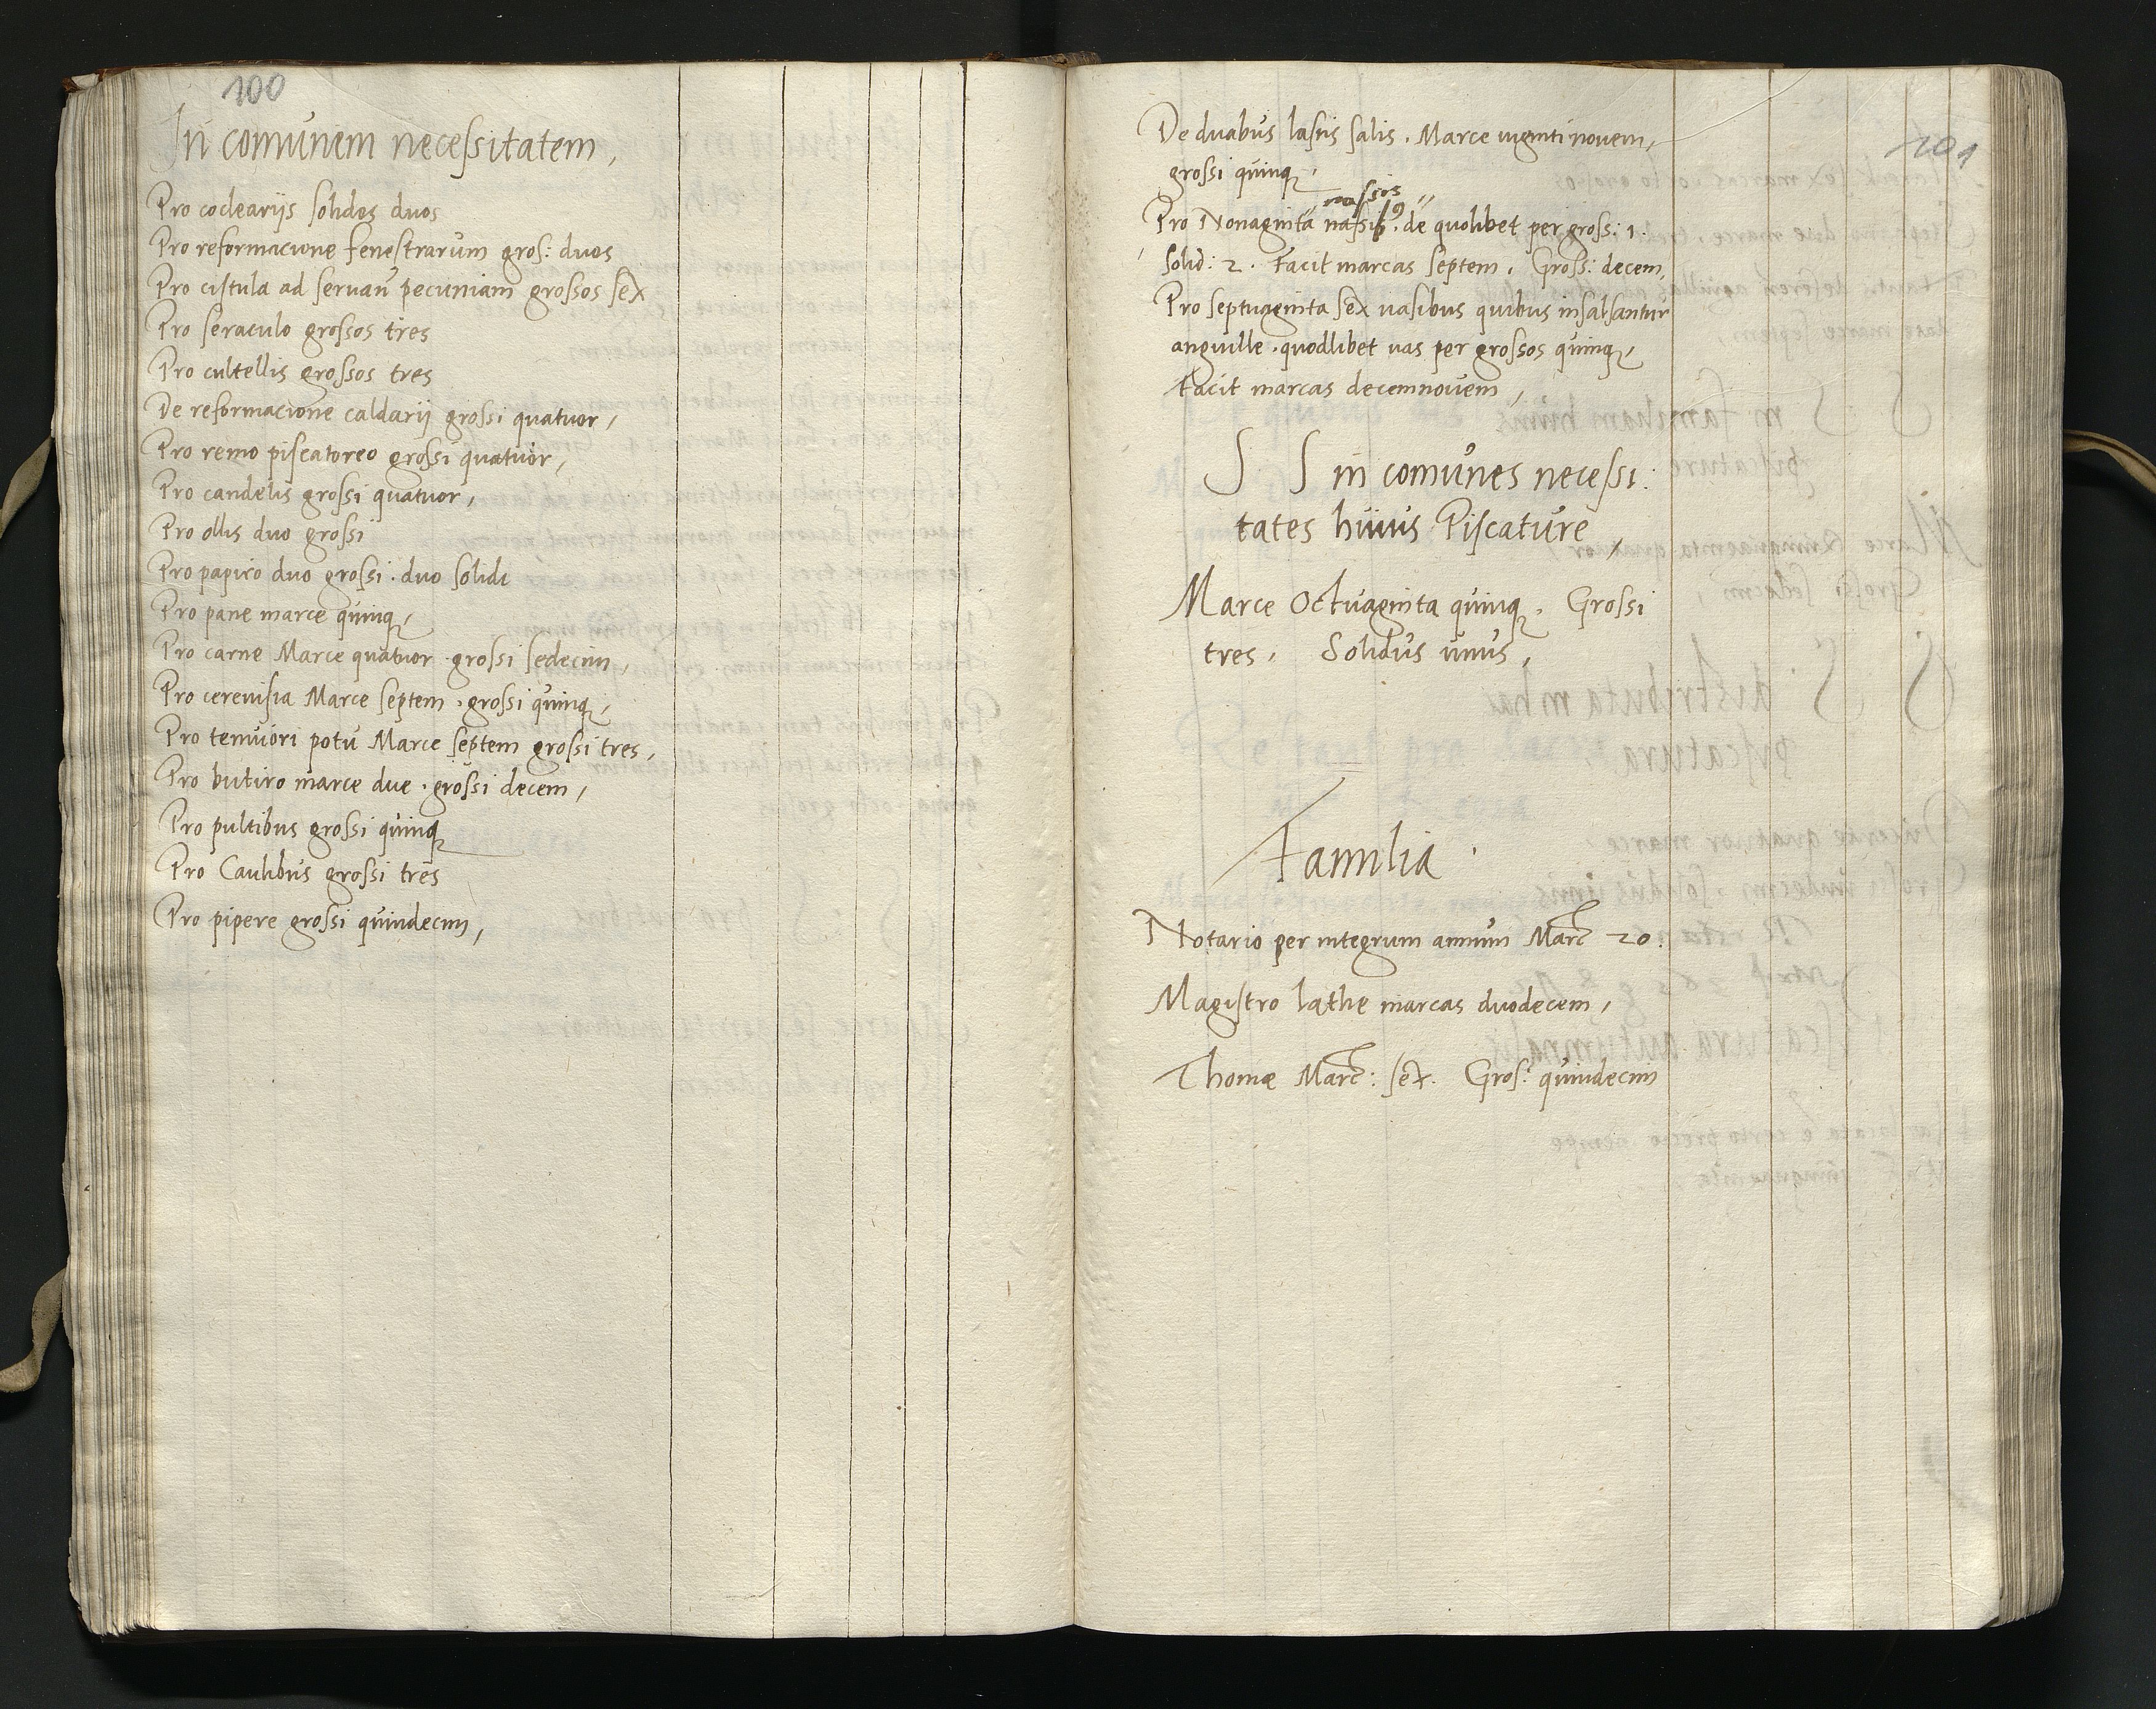 100
In comunem necessitatem,
Pro coclearijs solidos duos
Pro reformacione fenestrarum gros: duos
Pro cistula ad servan̄ pecuniam grossos sex
Pro seraculo grossos tres
Pro cultellis grossos tres
De reformacione caldarij grossi quatuor,
Pro remo piscatoreo grossi quatuor,
Pro candelis grossi quatuor,
Pro ollis duo grossi
Pro papiro duo grossi . duo solidi
Pro pane marce quinq,
Pro carne Marce quatuor grossi sedecim,
Pro cerevisia Marce septem . grossi quinq,
Pro tenuiori potu Marce septem grossi tres,
Pro butiro marce due . grossi decem,
Pro pultibus grossi quinq
Pro Caulibus grossi tres
Pro pipere grossi quindecim,
101
De duabus lastis salis . Marce viginti novem,
grossi quinq,
Pro Nonaginta . de quolibet per gross: 1.
Solid: 2 . Facit marcas septem . Gross: decem,
Pro septuaginta sex vasibus quibus insalsantur
anguille . quodlibet vas per grossos quinq,
Facit marcas decemnovem,
S S in comunes necessi:
tates huius Piscature,
Marce Octuaginta quinq. Grossi
tres, Solidus unus,
Familia.
Notario per integrum annum Marc 20.
Magistro lathe marcas duodecem,
Thomæ Marc: sex. Gros: quindecim